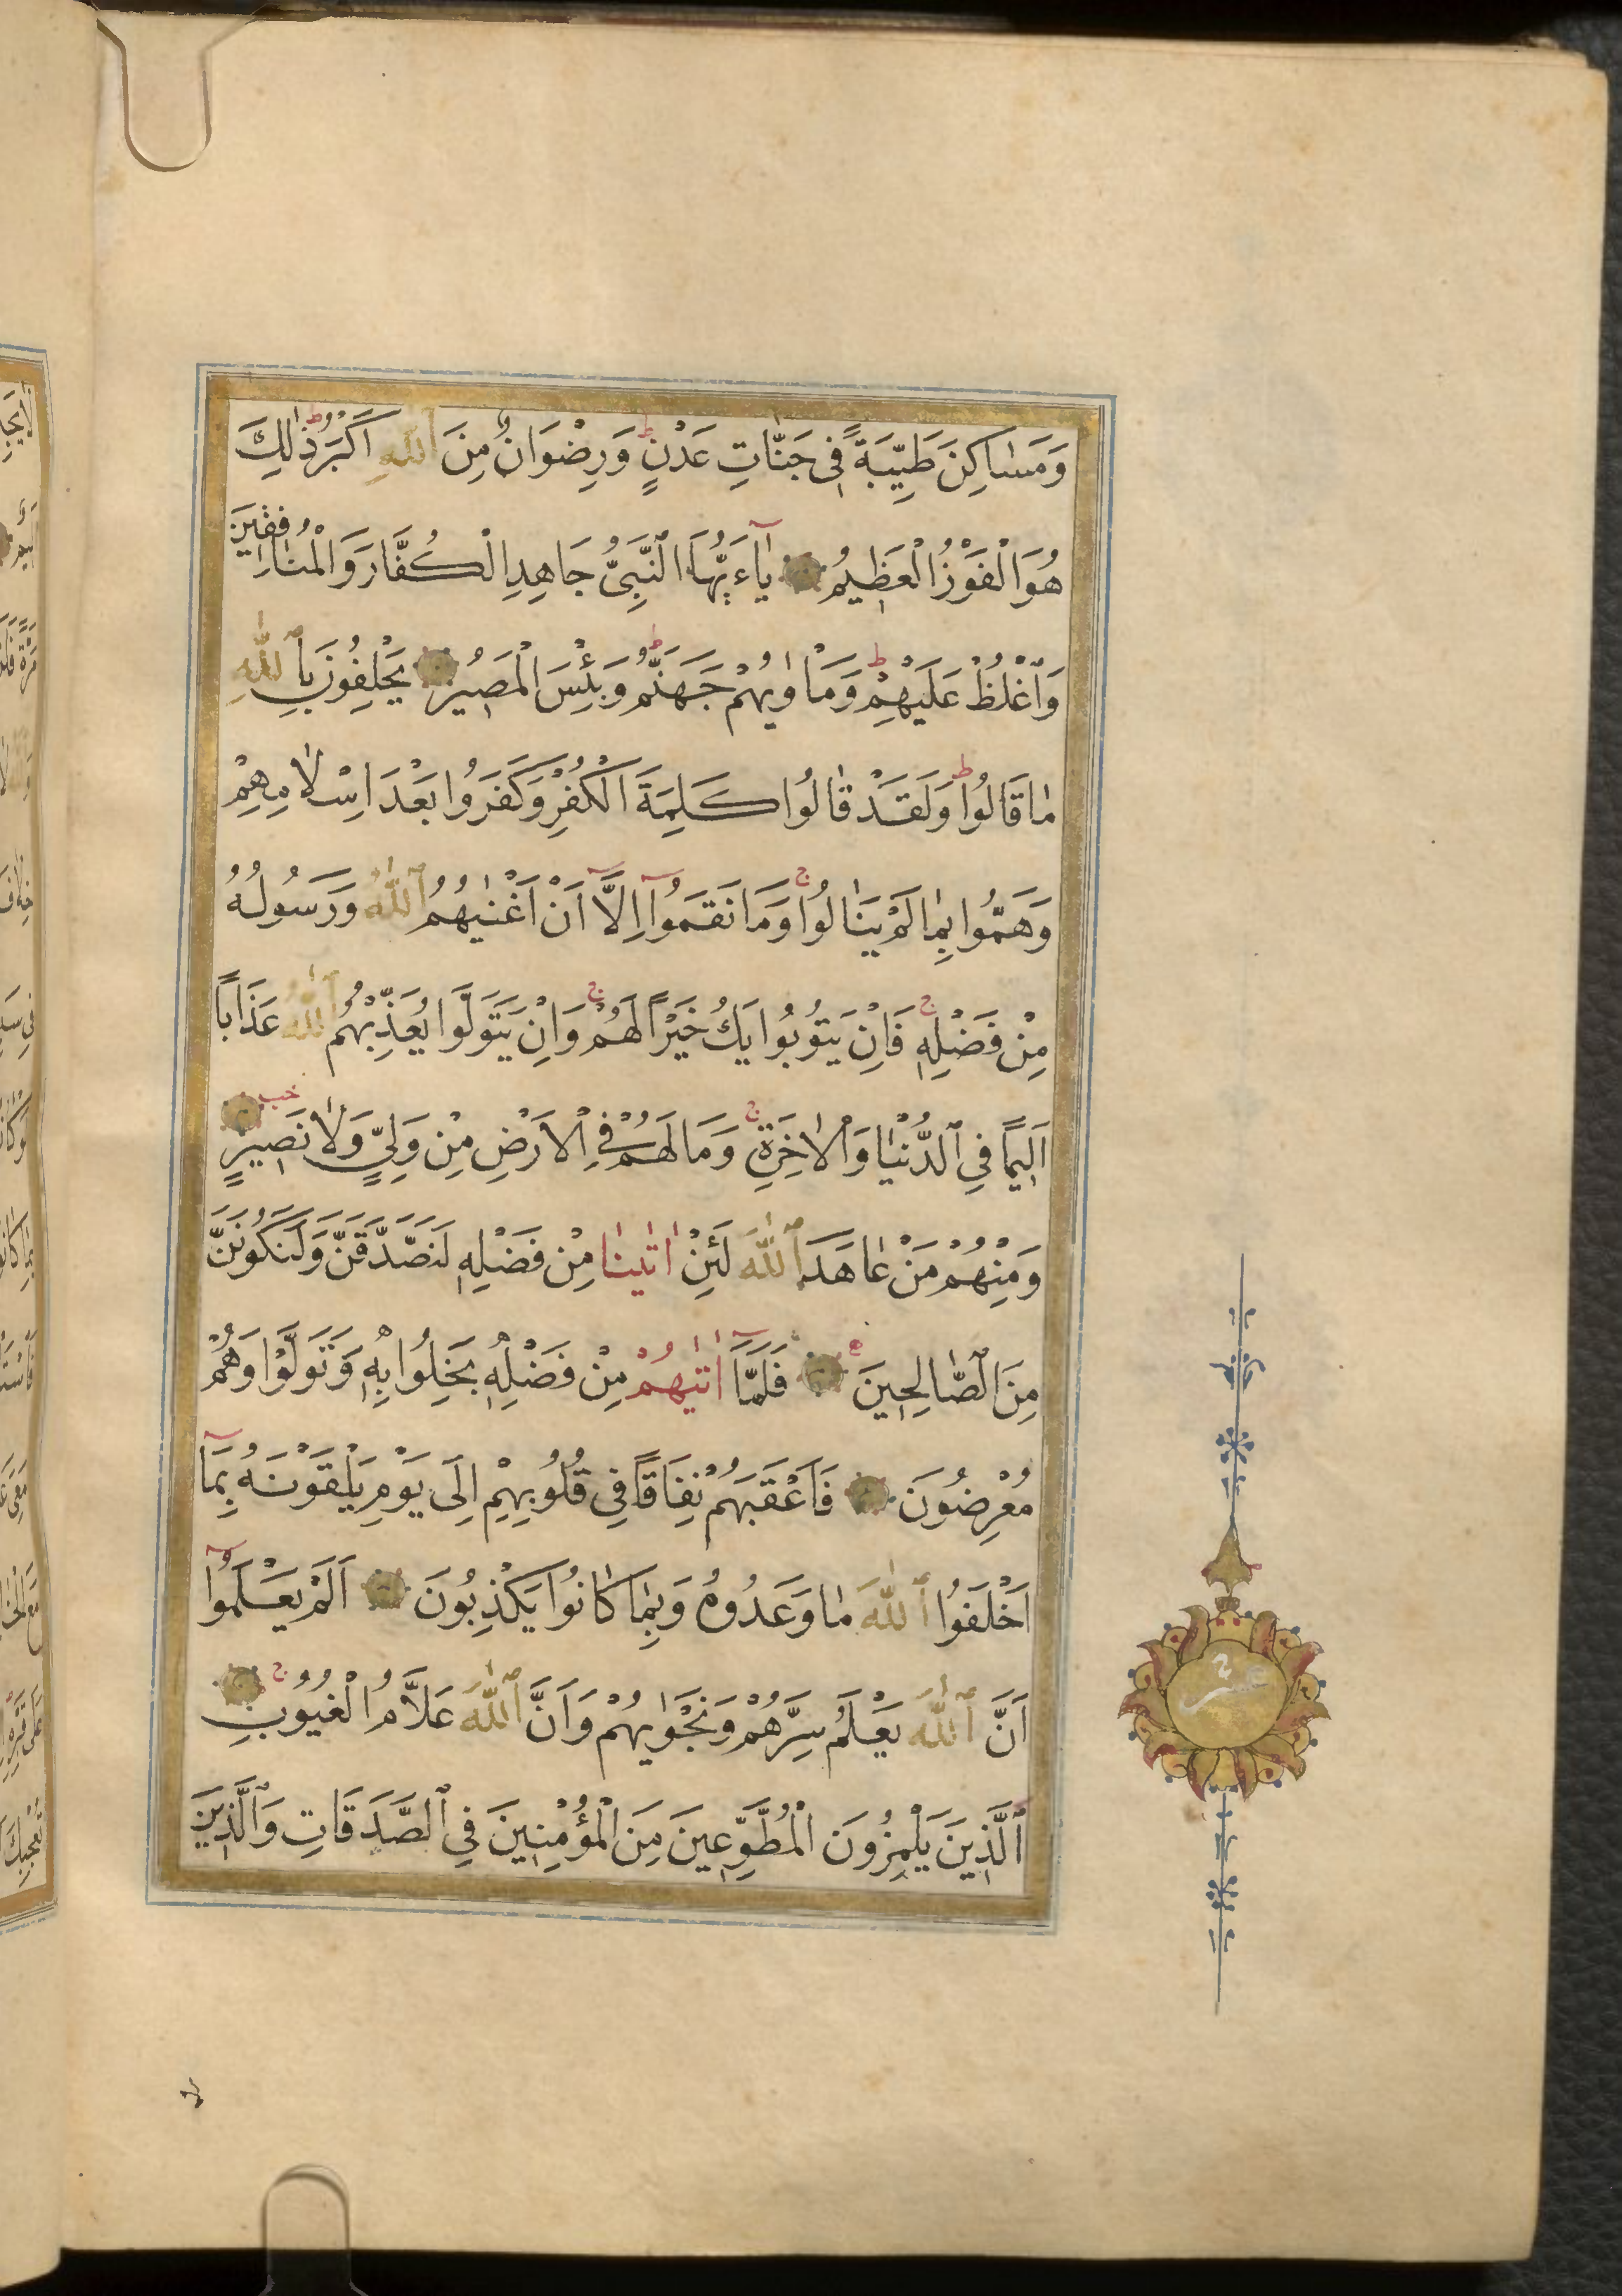 وَمَسٰاكِنَ طَيِّبَةً فِى جَنَّاتِ عَدْنٍ ط وَرِضْوَانٌ مِنَ ٱللّٰهِ اَكْبَرُ ط ذٰلِكَ
هُوَ الْفَوْزُ الْعَظِيمُ يٰٓاءَيُّهَا النَّبِىُّ جَاهِدِ الْكُفَّارَ وَالْمُنٰافِقٖينَ
وَاغْلُظْ عَلَيْهِمْ ط وَمَاْوٰيهُمْ جَهَنَّمُ ط وَبِئْسَ الْمَصٖيرُ يَحْلِفُونَ بِاللّٰهِ
مٰا قَالُوا ط وَلَقَدْ قٰالُوا كَلِمَةَ الْكُفْرِ وَكَفَرُوا بَعْدَ اِسْلٰامِهِمْ
وَهَمُّوا بِمٰا لَمْ يَنٰالُوا ج وَمَا نَقَمُوٓا اِلَّٓا اَنْ اَغْنٰيهُمُ ٱللّٰهُ وَرَسُولُهُ
مِنْ فَضْلِهٖ ج فَاِنْ يَتُوبُوا يَكُ خَيْرًا لَهُمْ ج وَاِنْ يَتَوَلَّوْا يُعَذِّبْهُمُ ٱللّٰهُ عَذَابًا
اَلٖيمًا فِي الدُّنْيٰا وَالْاٰخِرَةِ ج وَمَا لَهُمْ فِي الْاَرْضِ مِنْ وَلِيٍّ وَلٰا نَصٖيرٍ
وَمِنْهُمْ مَنْ عٰاهَدَ ٱللّٰهَ لَئِنْ اٰتٰينٰا مِنْ فَضْلِهٖ لَنَصَّدَّقَنَّ وَلَنَكُونَنَّ
مِنَ الصّٰالِحٖينَ فَلَمَّٓا اٰتٰيهُمْ مِنْ فَضْلِهٖ بَخِلُوا بِهٖ وَتَوَلَّوْا وَهُمْ
مُعْرِضُونَ فَاَعْقَبَهُمْ نِفَاقًا فِي قُلُوبِهِمْ اِلَى يَوْمِ يَلْقَوْنَهُ بِمَٓا
اَخْلَفُوا ٱللّٰهَ مٰا وَعَدُوهُ وَبِمٰا كٰانُوا يَكْذِبُونَ اَلَمْ يَعْلَمُوٓا
اَنَّ ٱللّٰهَ يَعْلَمُ سِرَّهُمْ وَنَجْوٰيهُمْ وَاَنَّ ٱللّٰهَ عَلَّامُ الْغُيُوبِ ج
ٱلَّذٖينَ يَلْمِزُونَ الْمُطَّوِّعٖينَ مِنَ الْمُؤْمِنٖينَ فِي الصَّدَقَاتِ وَالَّذٖينَ
عشر